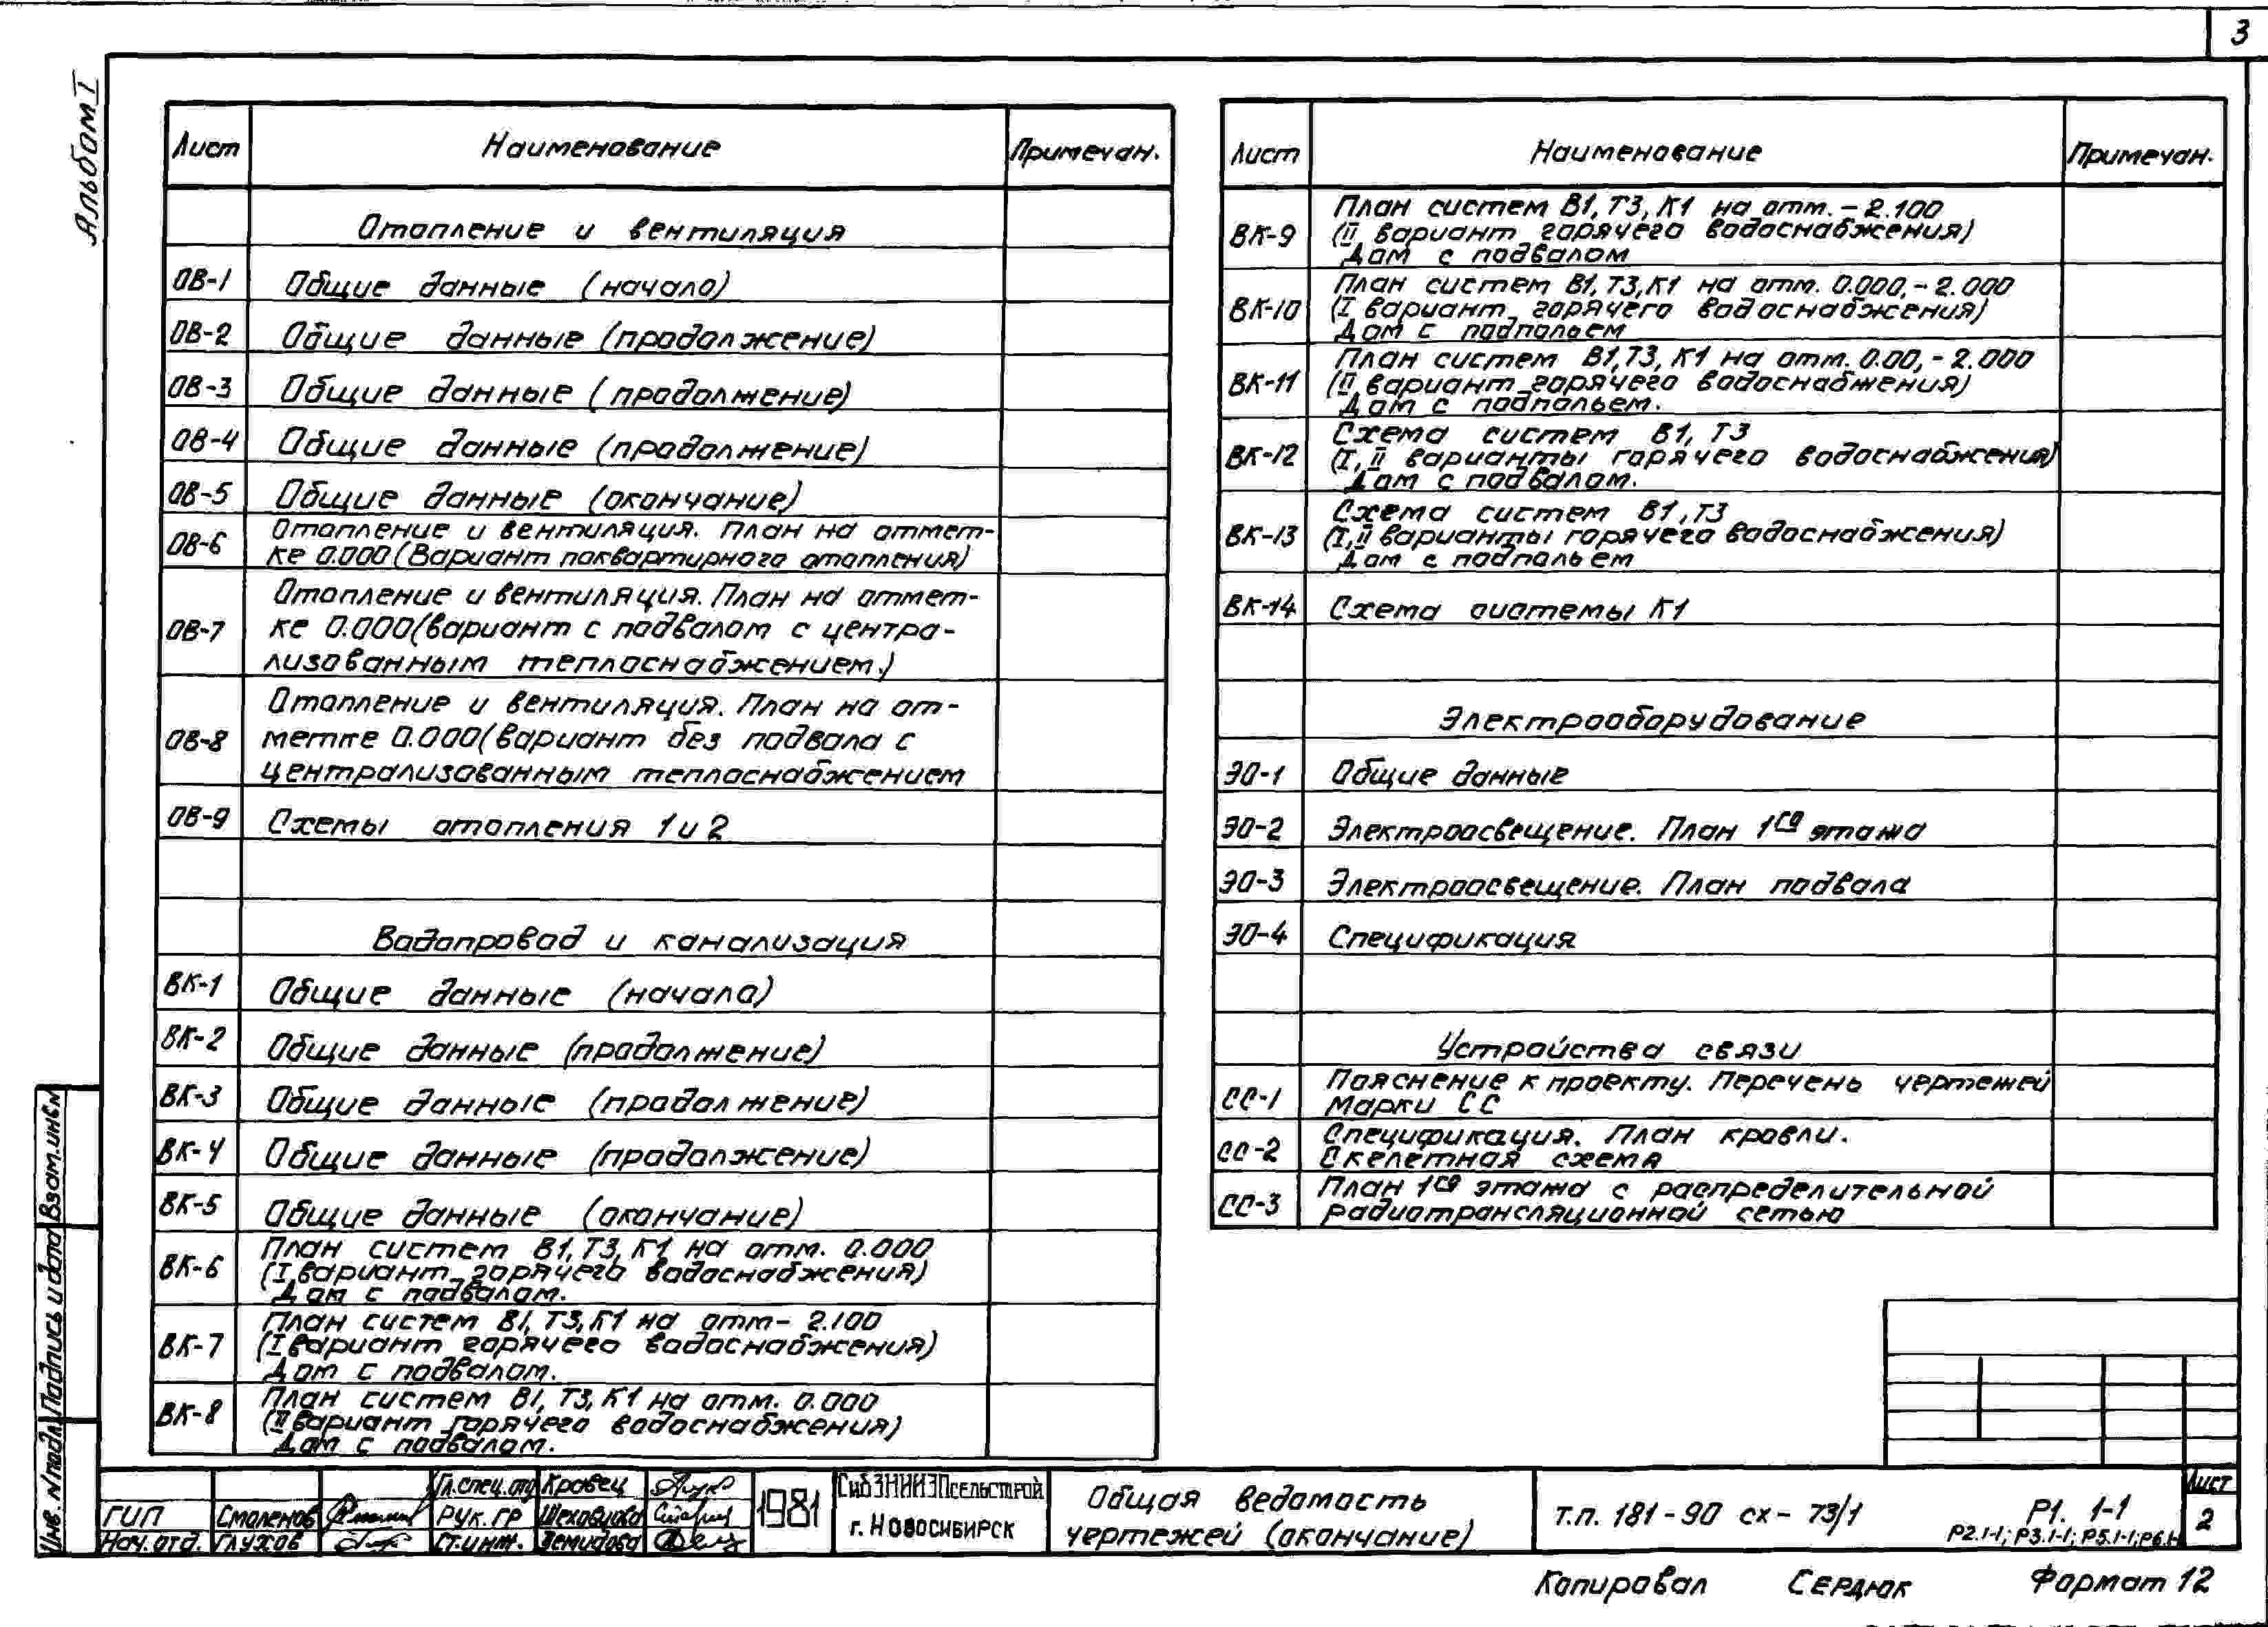 3
Альбом I
Лист Наименование Примечан.
Отопление и вентиляция
ОВ-1 Общие данные (начало)
ОВ-2 Общие данные (продолжение)
ОВ-3 Общие данные (продолжение)
ОВ-4 Общие данные (продолжение)
ОВ-5 Общие данные (окончание)
ОВ-6 Отопление и вентиляция. План на отмет-
ке 0.000 (Вариант поквартирного отопления)
ОВ-7 Отопление и вентиляция. План на отмет-
ке 0.000 (вариант с подвалом с центра-
лизованным теплоснабжением.)
ОВ-8 Отопление и вентиляция. План на от-
метке 0.000 (вариант без подвала с
централизованным теплоснабжением
ОВ-9 Схемы отопления 1 и 2
Водопровод и канализация
ВК-1 Общие данные (начало)
ВК-2 Общие данные (продолжение)
ВК-3 Общие данные (продолжение)
ВК-4 Общие данные (продолжение)
ВК-5 Общие данные (окончание)
ВК-6 План систем В1, Т3, К1 на отм. 0.000
(I вариант горячего водоснабжения)
Дом с подвалом.
ВК-7 План систем В1, Т3, К1 на отм - 2.100
(I вариант горячего водоснабжения)
Дом с подвалом.
ВК-8 План систем В1, Т3, К1 на отм. 0.000
(II вариант горячего водоснабжения)
Дом с подвалом.
Лист Наименование Примечан.
ВК-9 План систем В1, Т3, К1 на отм. - 2.100
(II вариант горячего водоснабжения)
Дом с подвалом
ВК-10 План систем В1, Т3, К1 на отм. 0.000, - 2.000
(I вариант горячего водоснабжения)
Дом с подпольем
ВК-11 План систем В1, Т3, К1 на отм. 0.00, - 2.000
(II вариант горячего водоснабжения)
Дом с подпольем.
ВК-12 Схема систем В1, Т3
(I, II варианты горячего водоснабжения)
Дом с подвалом.
ВК-13 Схема систем В1, Т3
(I, II варианты горячего водоснабжения)
Дом с подпольем
ВК-14 Схема системы К1
Электрооборудование
ЭО-1 Общие данные
ЭО-2 Электроосвещение. План 1го этажа
ЭО-3 Электроосвещение. План подвала
ЭО-4 Спецификация
Устройства связи
СС-1 Пояснение к проекту. Перечень чертежей
Марки СС
СС-2 Спецификация. План кровли.
Скелетная схема
СС-3 План 1го этажа с распределительной
радиотрансляционной сетью
Инв. N подл. Подпись и дата Взам. инв N
Гл. спец. отд Кравец
ГИП Смоленов Рук. гр Шеховцова
Нач. отд. Глухов Ст. инж. Демидова
1981
СибЗНИИЭПсельстрой
г. Новосибирск
Общая ведомость
чертежей (окончание)
т.п. 181-90 сх - 73/1
Р1. 1-1
Р2.1-1; Р3.1-1; Р5.1-1; Р6.1-1
Лист
2
Копировал Сердюк Формат 12